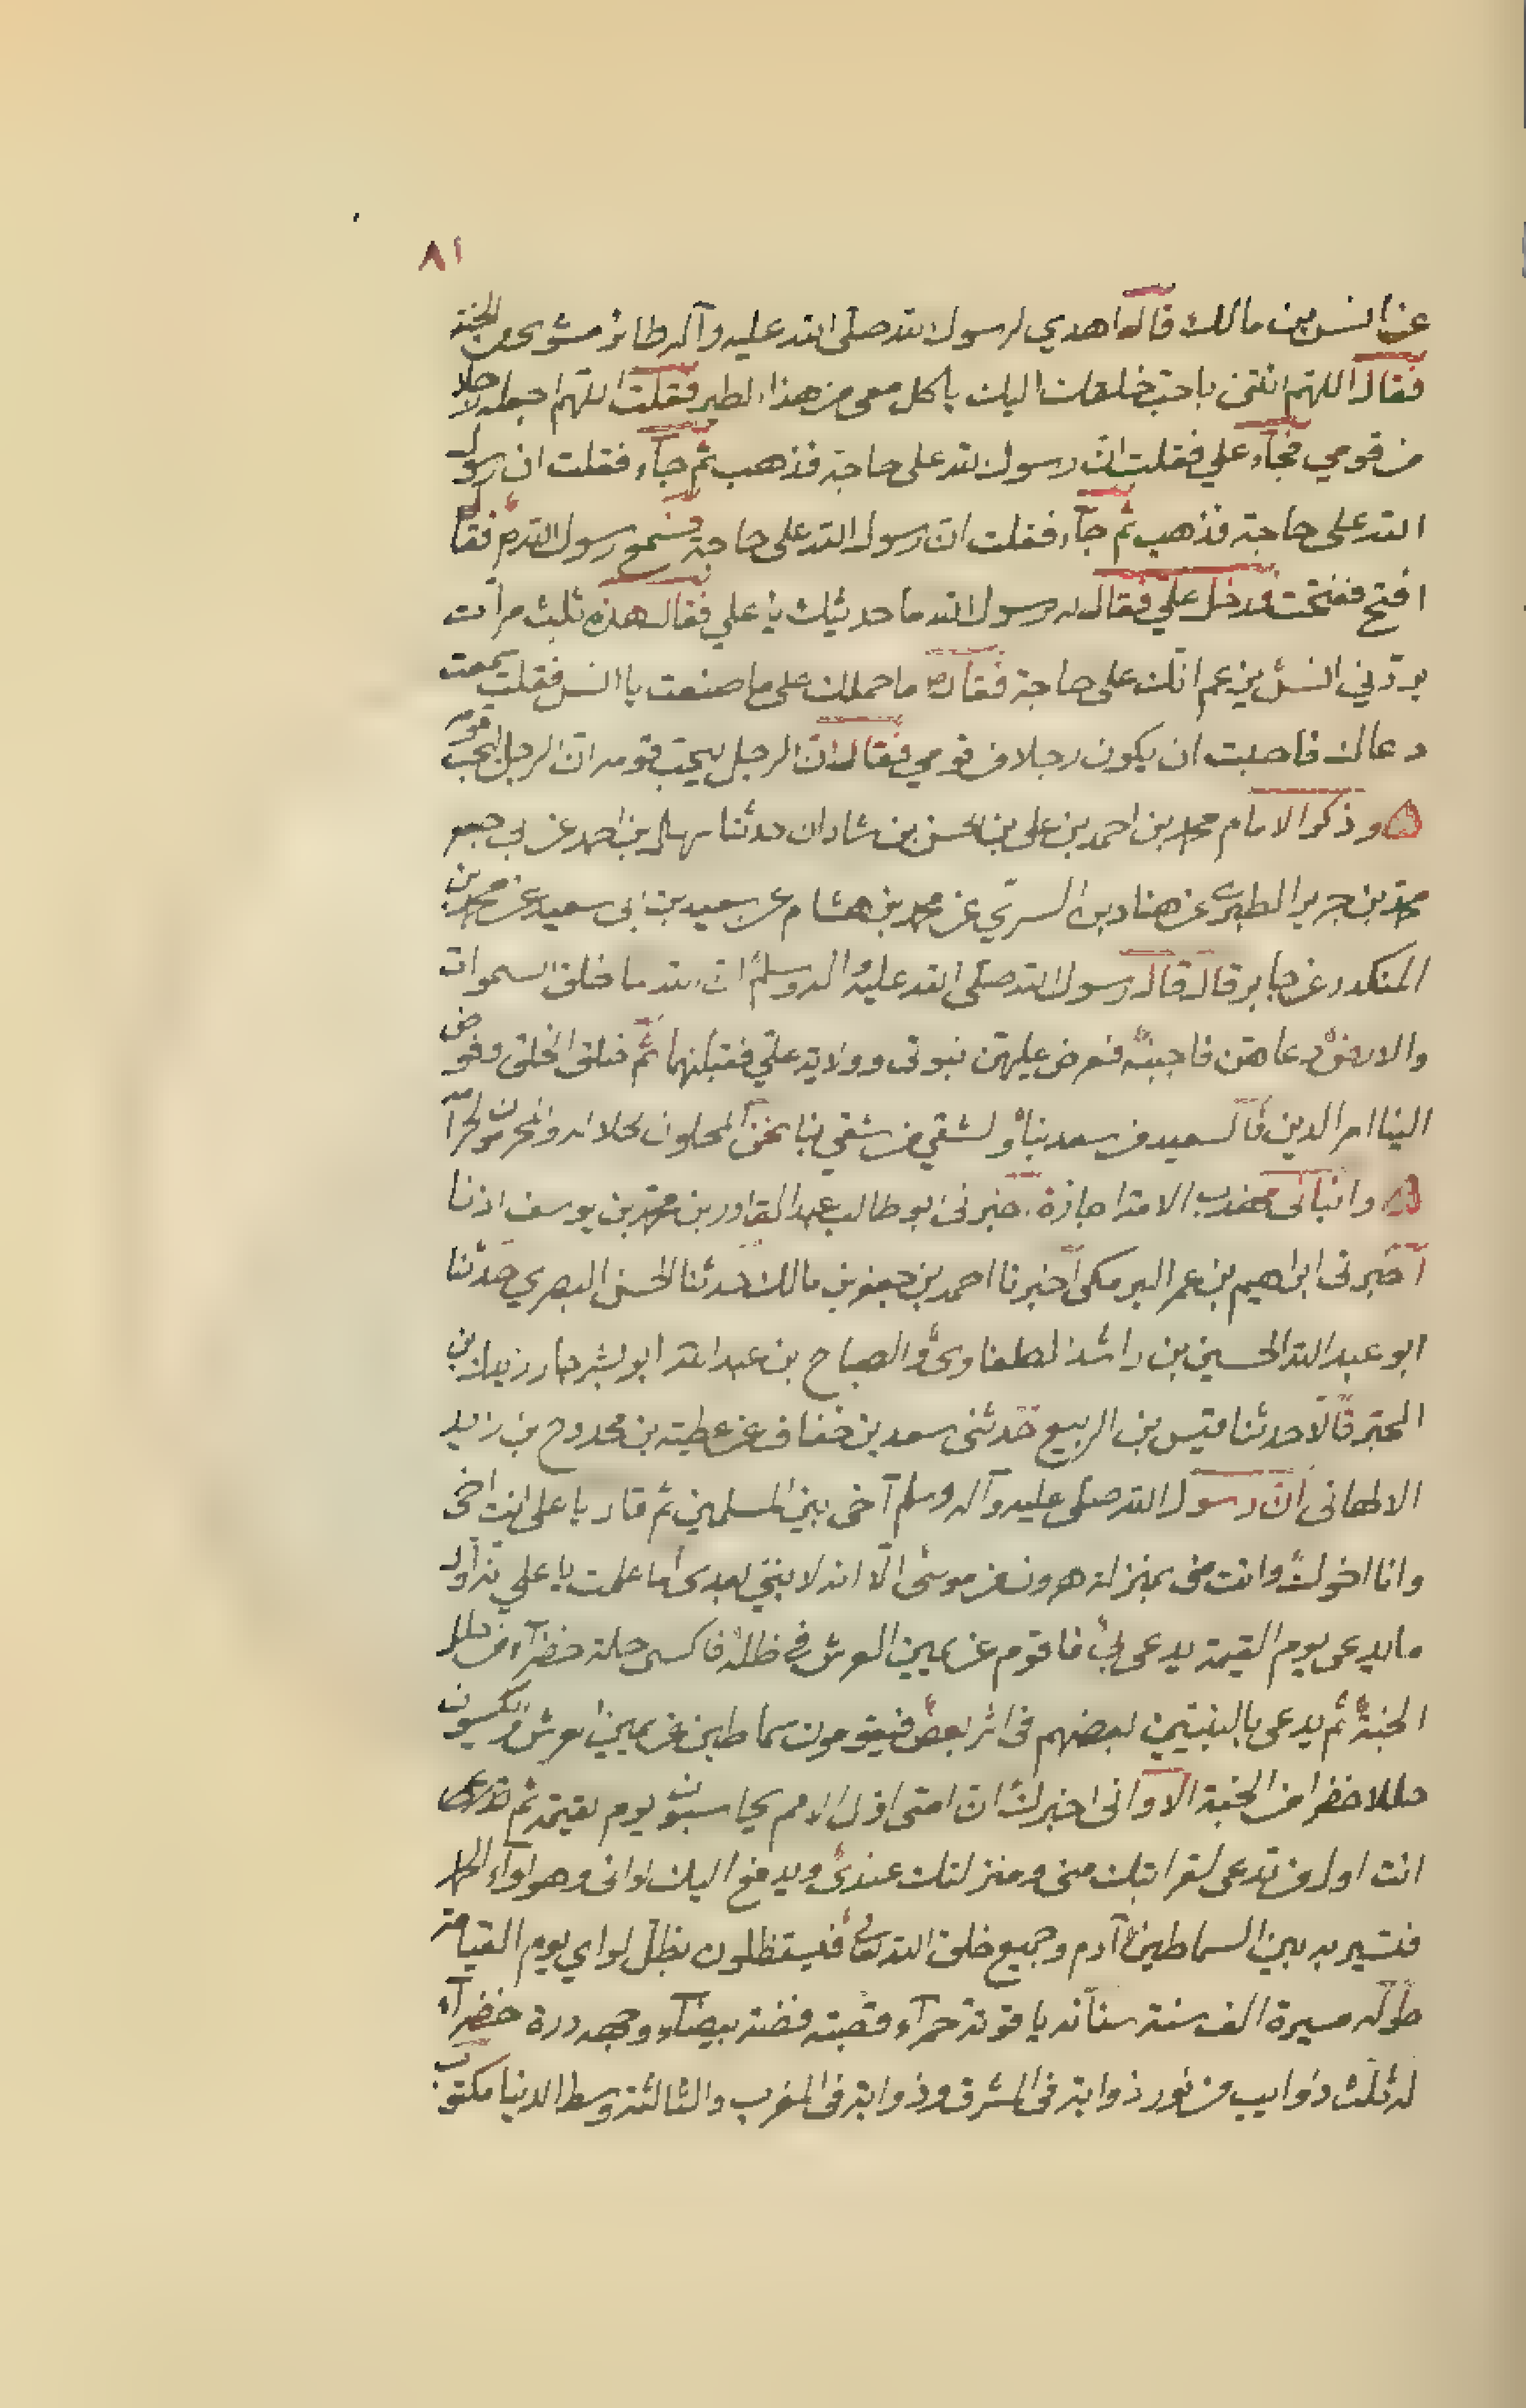 ٨١
عن انس بن مالك قال اهدي لرسول الله صلى الله عليه وآله طائر مشوي من الجنة
فقال اللهم ائتنى باحب خلقك اليك ياكل معى من هذا الطير فقلت اللهم اجعله رجلا
من قومي فجاء علي فقلت ان رسول الله على حاجة فذهب ثم جآء فقلت ان رسول
الله على حاجة فذهب ثم جآء فقلت ان رسول الله على حاجة فسمع رسول الله ثم فقال
افتح ففتحت فدخل علي فقال له رسول الله ما حديثك يا علي فقال هذه ثلث مرات
يردّني انس يزعم انّك على حاجة فقال ما حملك على ما صنعت يا انس فقلت سمعت
دعاك فاحببت ان يكون رجلا من قومي فقال انّ الرجل ليحبّ قومه انّ الرجل ليحب قومه
وذكر الامام محمد بن احمد بن على بن الحسن بن شاذان حدثنا سهل بن احمد عن ابى جعفر
محمّد بن جرير الطبرى عن هناد بن السريّ عن محمد بن هشام عن سعيد بن ابى سعيد عن محمد بن
المنكدر عن جابر قال قال رسول الله صلى الله عليه وآله وسلم ان الله لما خلق السموات
والارض دعاهن فاجبنه فعرض عليهن نبوتى وولاية علي فقبلنهما ثم خلق الخلق وفوض
الينا امر الدين فالسعيد من سعد بنا والشقي من شقي بنا نحن المحلون لحلاله والمحرمون لحرامه
وانبأنى مهذب الائمة اجازة اخبرنى ابو طالب عبد القادر بن محمد بن يوسف اذنا
اخبرنى ابراهيم بن عمر البرمكى اخبرنا احمد بن جعفر بن مالك حدثنا الحسن البصري حدثنا
ابو عبد الله الحسين بن راشد الطفاوى والصباح بن عبد الله ابو بشر جار بدل بن
المحبّر قالا حدثنا قيس بن الربيع حدثنى سعد بن خفاف عن عطية بن محدوح بن زيد
الالهانى ان رسول الله صلى عليه وآله وسلم آخى بين المسلمين ثم قال يا على انت اخى
وانا اخوك وانت منى بمنزلة هرون من موسى الا انه لا نبى بعدى اما علمت يا علي انه اول
ما يدعى يوم القيمة يدعى بي فاقوم عن يمين العرش في ظله فاكسى حلة خضرآء من حلل
الجنة ثم يدعى بالنبيين بعضهم فى اثر بعض فيقومون سماطين عن يمين العرش ويكسون
حللا خضرا من الجنة الا وانى اخبرك ان امتى اول الامم يحاسبون يوم القيمة ثم
انت اول من تدعى لقرابتك منى ومنزلتك عندى ويدفع اليك لوائى وهو لوآء الحمد
فتسير به بين السماطين آدم وجميع خلق الله تعالى فيستظلون بظل لواي يوم القيامة
طوله مسيرة الف سنة سنانه ياقوتة حمرآء قصبته فضة بيضآء وجهه درة خضرآء
له ثلث ذوايب من نور ذوابة فى المشرق وذوابة فى المغرب والثالثة وسط الدنيا مكتوب